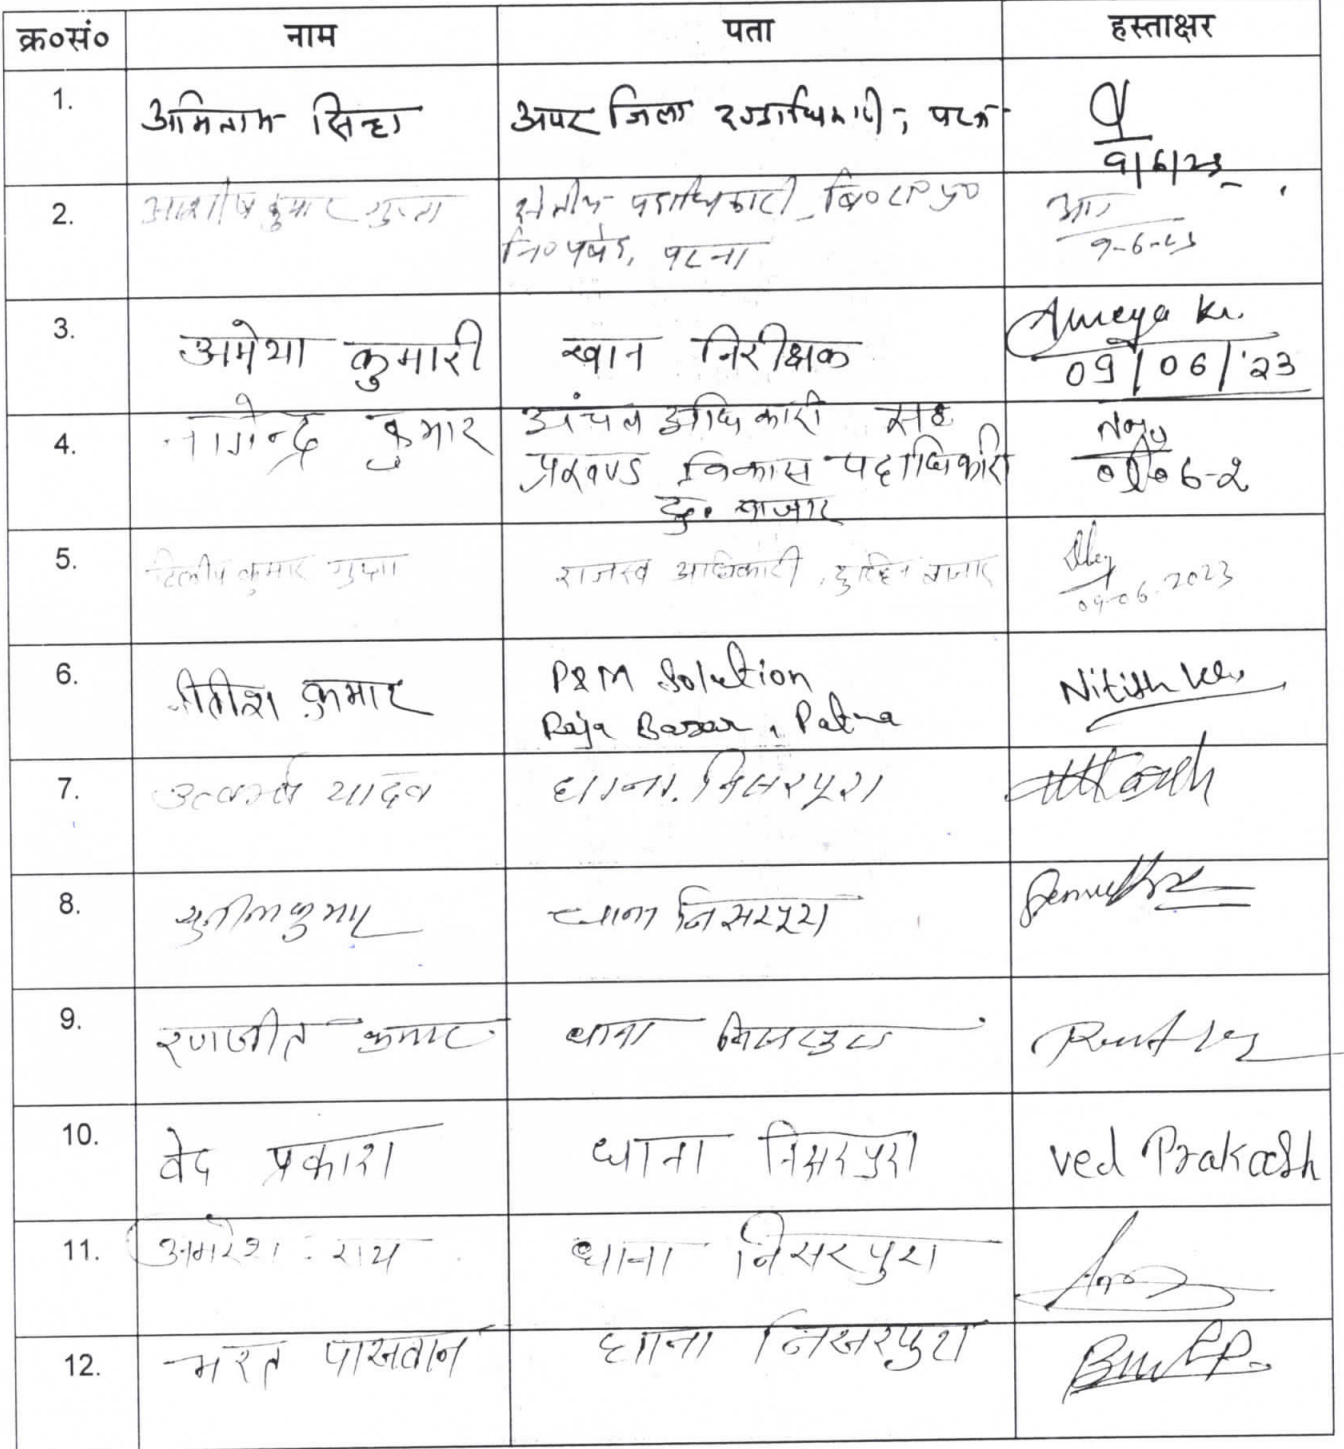 क्र०सं० नाम पता हस्ताक्षर
1. अमिताभ सिन्हा अपर जिला दण्डाधिकारी, पटना
9/6/23
2. आशीष कुमार गुप्ता क्षेत्रीय पदाधिकारी बि०रा०प्र०
नि०पर्षद, पटना
9-6-23
3. अमेया कुमारी खान निरीक्षक Ameya Kr.
09/06/'23
4. नागेन्द्र कुमार अंचल अधिकारी सह
प्रखण्ड विकास पदाधिकारी
दु. बाजार
5. दिलीप कुमार गुप्ता राजस्व अधिकारी, दुल्हिन बाजार
09-06-2023
6. नीतीश कुमार P&M Solution Nitish Kr.
Raja Bazar, Patna
7. उत्कर्ष यादव थाना निसरपुरा
8. सुनील कुमार थाना निसरपुरा
9. रणजीत कुमार थाना निसरपुरा
10. वेद प्रकाश थाना निसरपुरा Ved Prakash
11. अमरेश राय थाना निसरपुरा
12. भरत पासवान थाना निसरपुरा